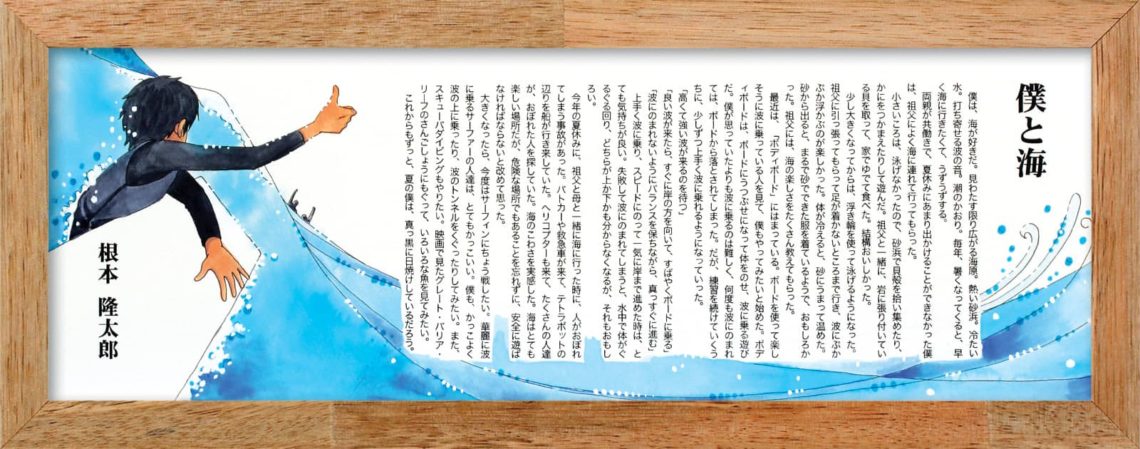 僕と海
僕は、海が好きだ。見わたす限り広がる海原。熱い砂浜。冷たい
水。打ち寄せる波の音。潮のかおり。毎年、暑くなってくると、早
く海に行きたくて、うずうずする。
両親が共働きで、夏休みにあまり出かけることができなかった僕
は、祖父によく海に連れて行ってもらった。
小さいころは、泳げなかったので、砂浜で貝殻を拾い集めたり、
かにをつかまえたりして遊んだ。祖父と一緒に、岩に張り付いてい
る貝を取って、家でゆでて食べた。結構おいしかった。
少し大きくなってからは、浮き輪を使って泳げるようになった。
祖父に引っ張ってもらって足が着かないところまで行き、波にぷか
ぷか浮かぶのが楽しかった。体が冷えると、砂にうまって温めた。
砂から出ると、まるで砂でできた服を着ているようで、おもしろか
った。祖父には、海の楽しさをたくさん教えてもらった。
最近は、「ボディボード」にはまっている。ボードを使って楽し
そうに波に乗っている人を見て、僕もやってみたいと始めた。ボデ
ィボードは、ボードにうつぶせになって体をのせ、波に乗る遊び
だ。僕が思っていたよりも波に乗るのは難しく、何度も波にのまれ
ては、ボードから落とされてしまった。だが、練習を続けていくう
ちに、少しずつ上手く波に乗れるようになっていった。
「高くて強い波が来るのを待つ」
「良い波が来たら、すぐに岸の方を向いて、すばやくボードに乗る」
「波にのまれないようにバランスを保ちながら、真っすぐに進む」
上手く波に乗り、スピードにのって一気に岸まで進めた時は、と
ても気持ちが良い。失敗して波にのまれてしまうと、水中で体がぐ
るぐる回り、どちらが上か下かも分からなくなるが、それもおもし
ろい。
今年の夏休みに、祖父と母と一緒に海に行った時に、人がおぼれ
てしまう事故があった。パトカーや救急車が来て、テトラポットの
辺りを船が行き来していた。ヘリコプターも来て、たくさんの人達
が、おぼれた人を探していた。海のこわさを実感した。海はとても
楽しい場所だが、危険な場所でもあることを忘れずに、安全に遊ば
なければならないと改めて思った。
大きくなったら、今度はサーフィンにちょう戦したい。華麗に波
に乗るサーファーの人達は、とてもかっこいい。僕も、かっこよく
波の上に乗ったり、波のトンネルをくぐったりしてみたい。また、
スキューバダイビングもやりたい。映画で見たグレート・バリア・
リーフのさんごしょうにもぐって、いろいろな魚を見てみたい。
これからもずっと、夏の僕は、真っ黒に日焼けしているだろう。
根本 隆太郎